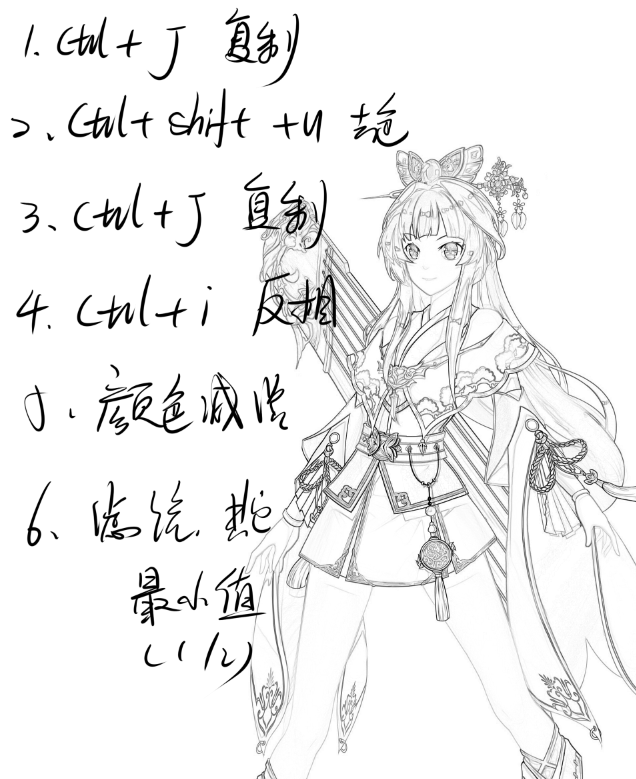 1. Ctrl + J 复制
2、Ctrl + shift + u 去色
3、Ctrl + J 复制
4. Ctrl + i 反相
5、颜色减淡
6、滤镜.其它
最小值
(1/2)